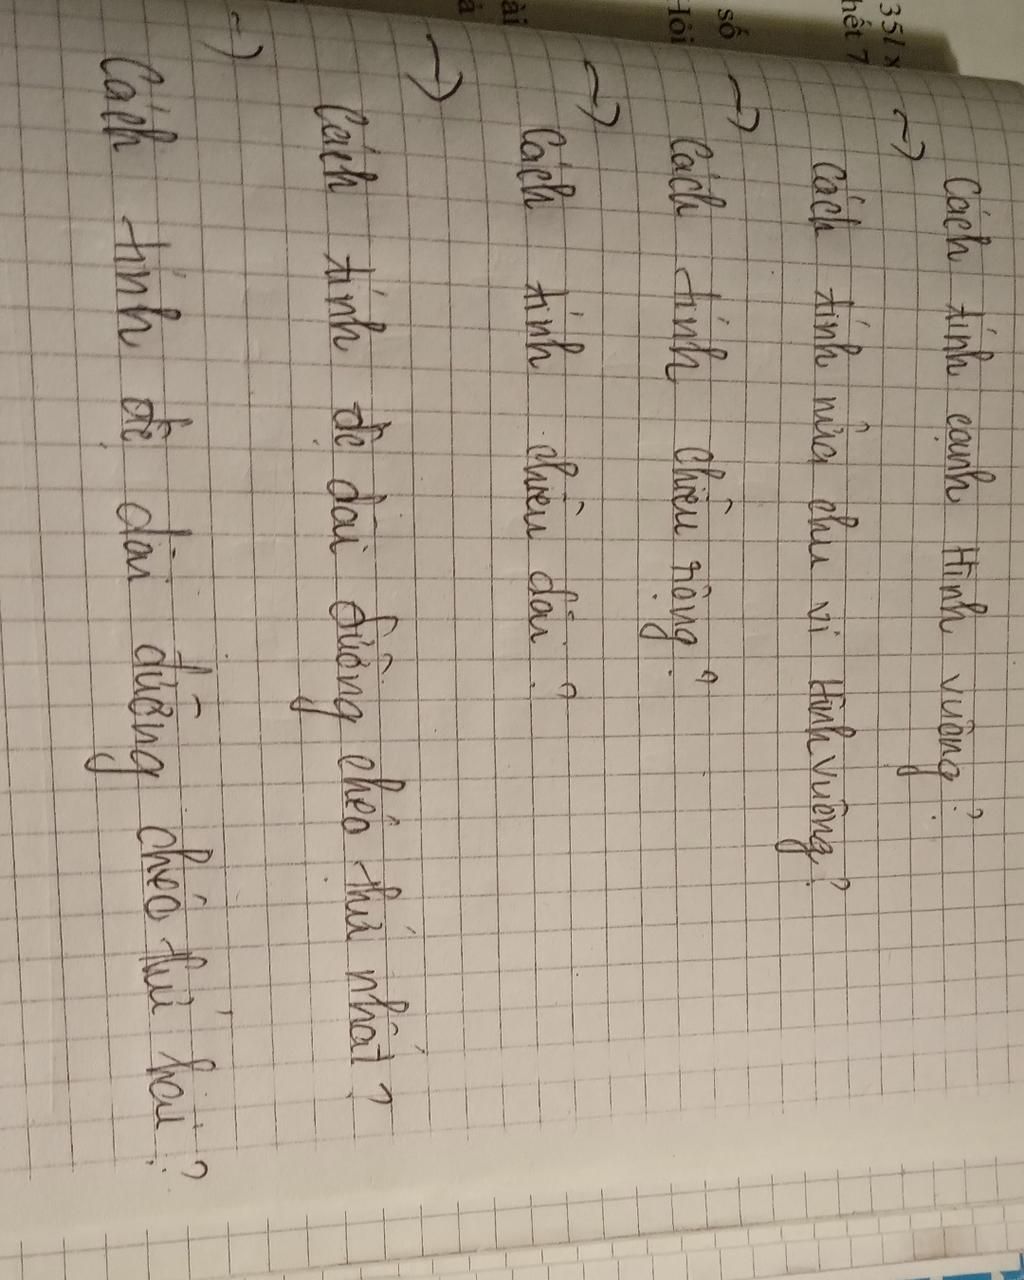 35/ x
hết 7
số
Hỏi
ài
Cách tính cạnh Hình vuông?
~)
Cách tính nửa chu vi Hình vuông?
~)
Cách tính chiều rộng?
~)
Cách tính chiều dài?
~)
Cách tính độ dài đường chéo thứ nhất?
~)
Cách tính độ dài đường chéo thứ hai?